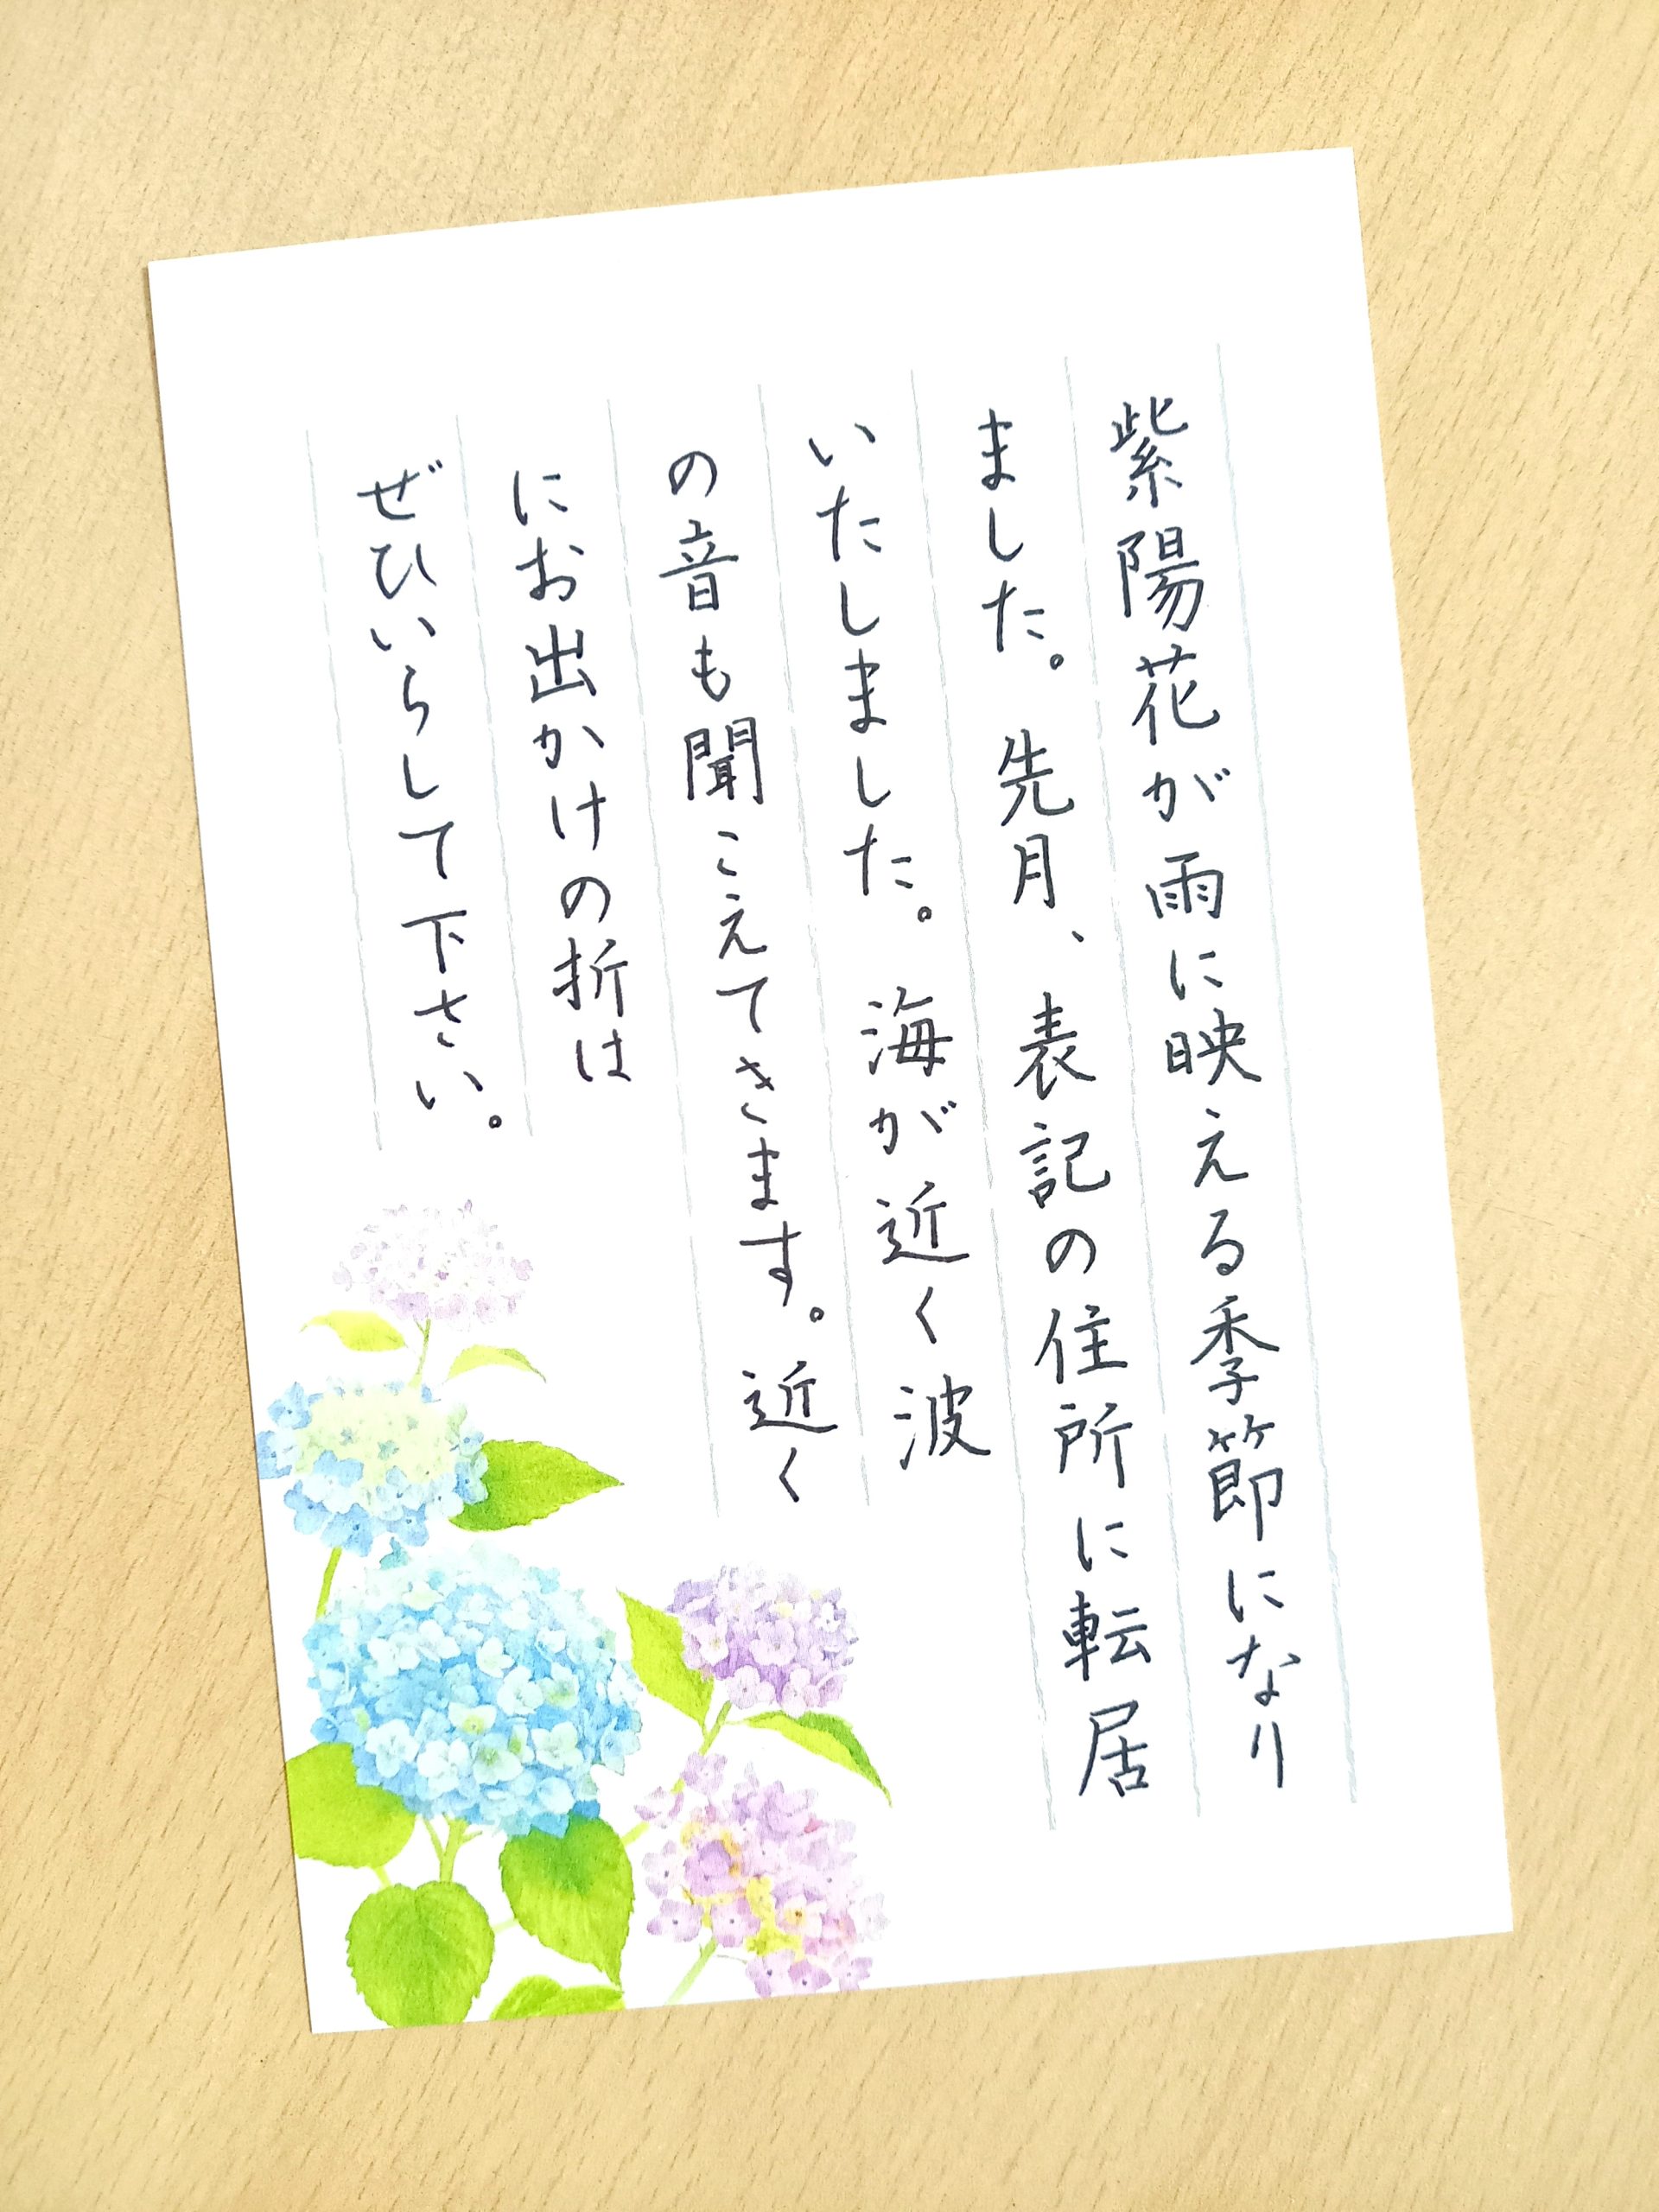 紫陽花が雨に映える季節になり
ました。先月、表記の住所に転居
いたしました。海が近く波
の音も聞こえてきます。近く
にお出かけの折は
ぜひいらして下さい。